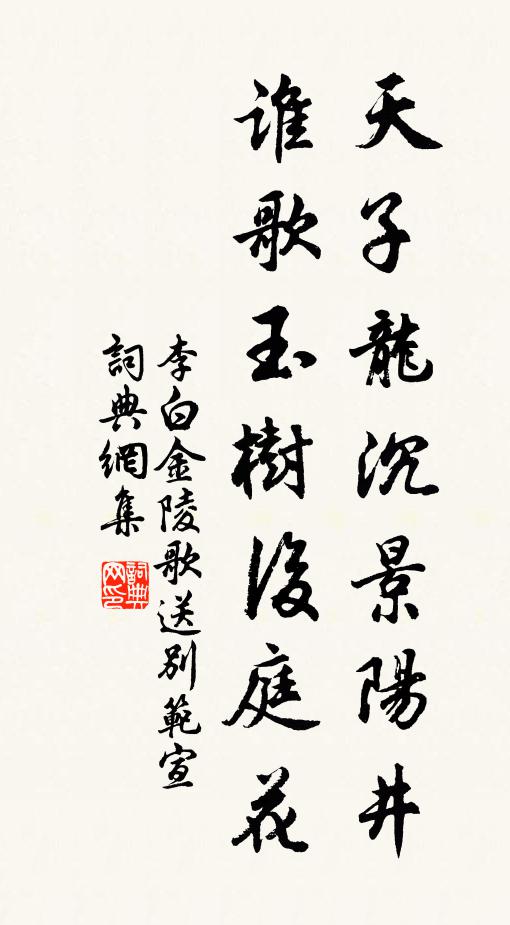 天子龍沉景陽井
誰歌玉樹後庭花
李白金陵歌送別範宣
詞典網集
詞典网印